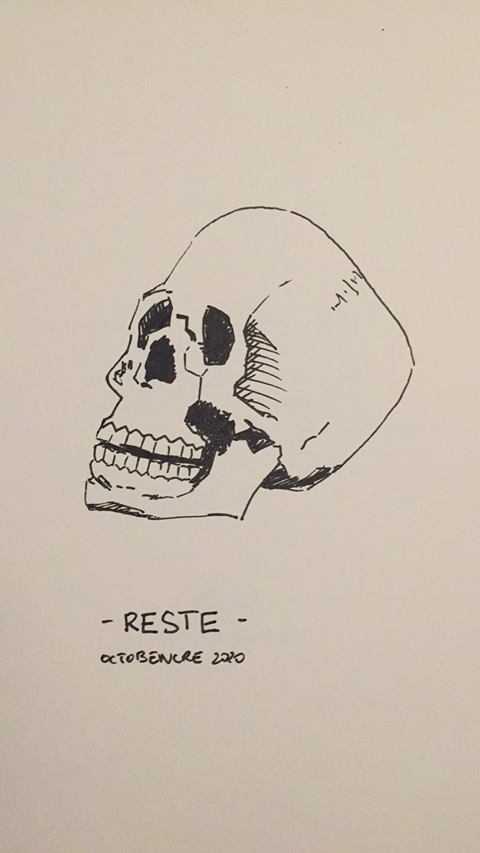 - RESTE -
OCTOBENCRE 2020